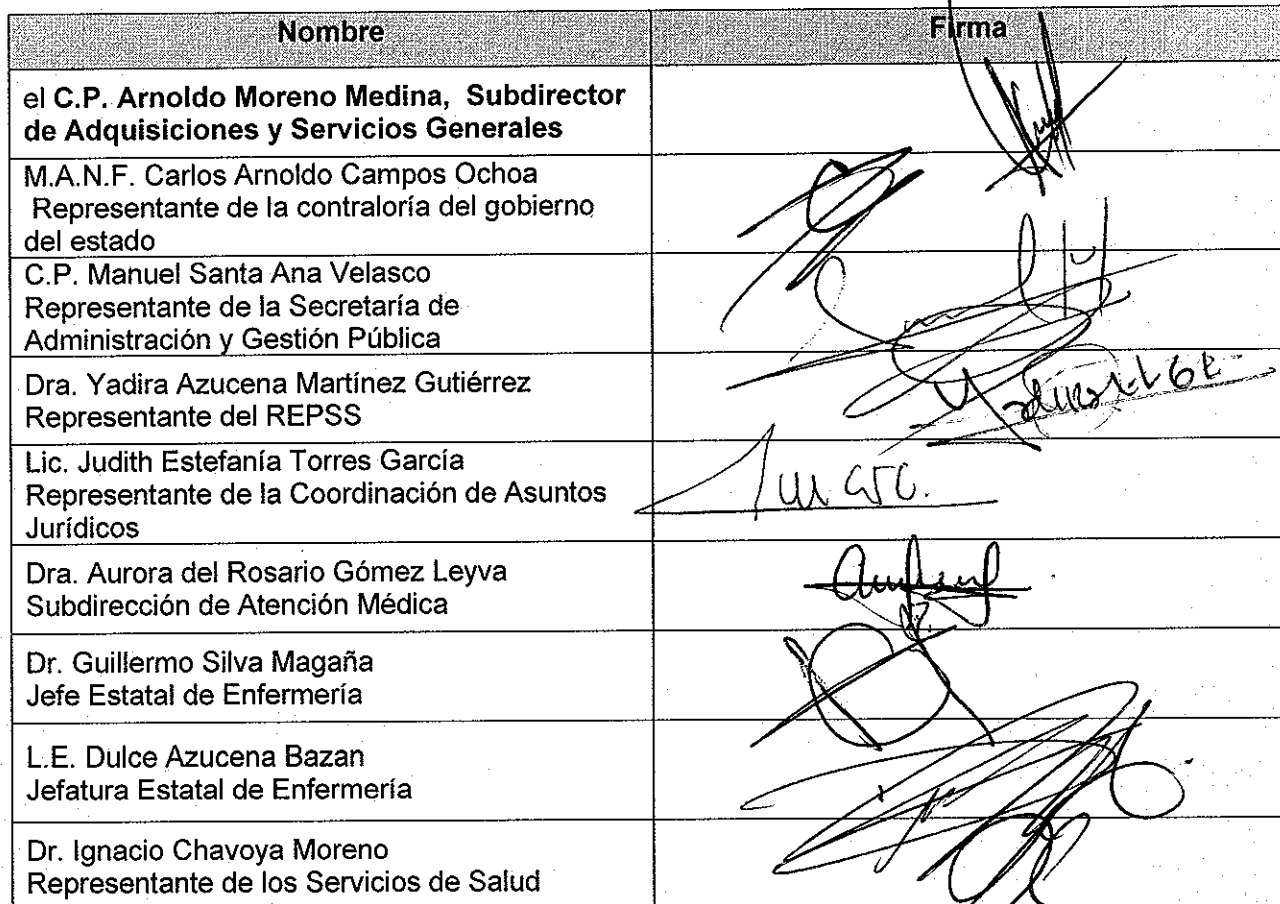 Nombre
Firma
el C.P. Arnoldo Moreno Medina, Subdirector
de Adquisiciones y Servicios Generales
M.A.N.F. Carlos Arnoldo Campos Ochoa
Representante de la contraloría del gobierno
del estado
C.P. Manuel Santa Ana Velasco
Representante de la Secretaría de
Administración y Gestión Pública
Dra. Yadira Azucena Martínez Gutiérrez
Representante del REPSS
Lic. Judith Estefanía Torres García
Representante de la Coordinación de Asuntos
Jurídicos
Dra. Aurora del Rosario Gómez Leyva
Subdirección de Atención Médica
Dr. Guillermo Silva Magaña
Jefe Estatal de Enfermería
L.E. Dulce Azucena Bazan
Jefatura Estatal de Enfermería
Dr. Ignacio Chavoya Moreno
Representante de los Servicios de Salud